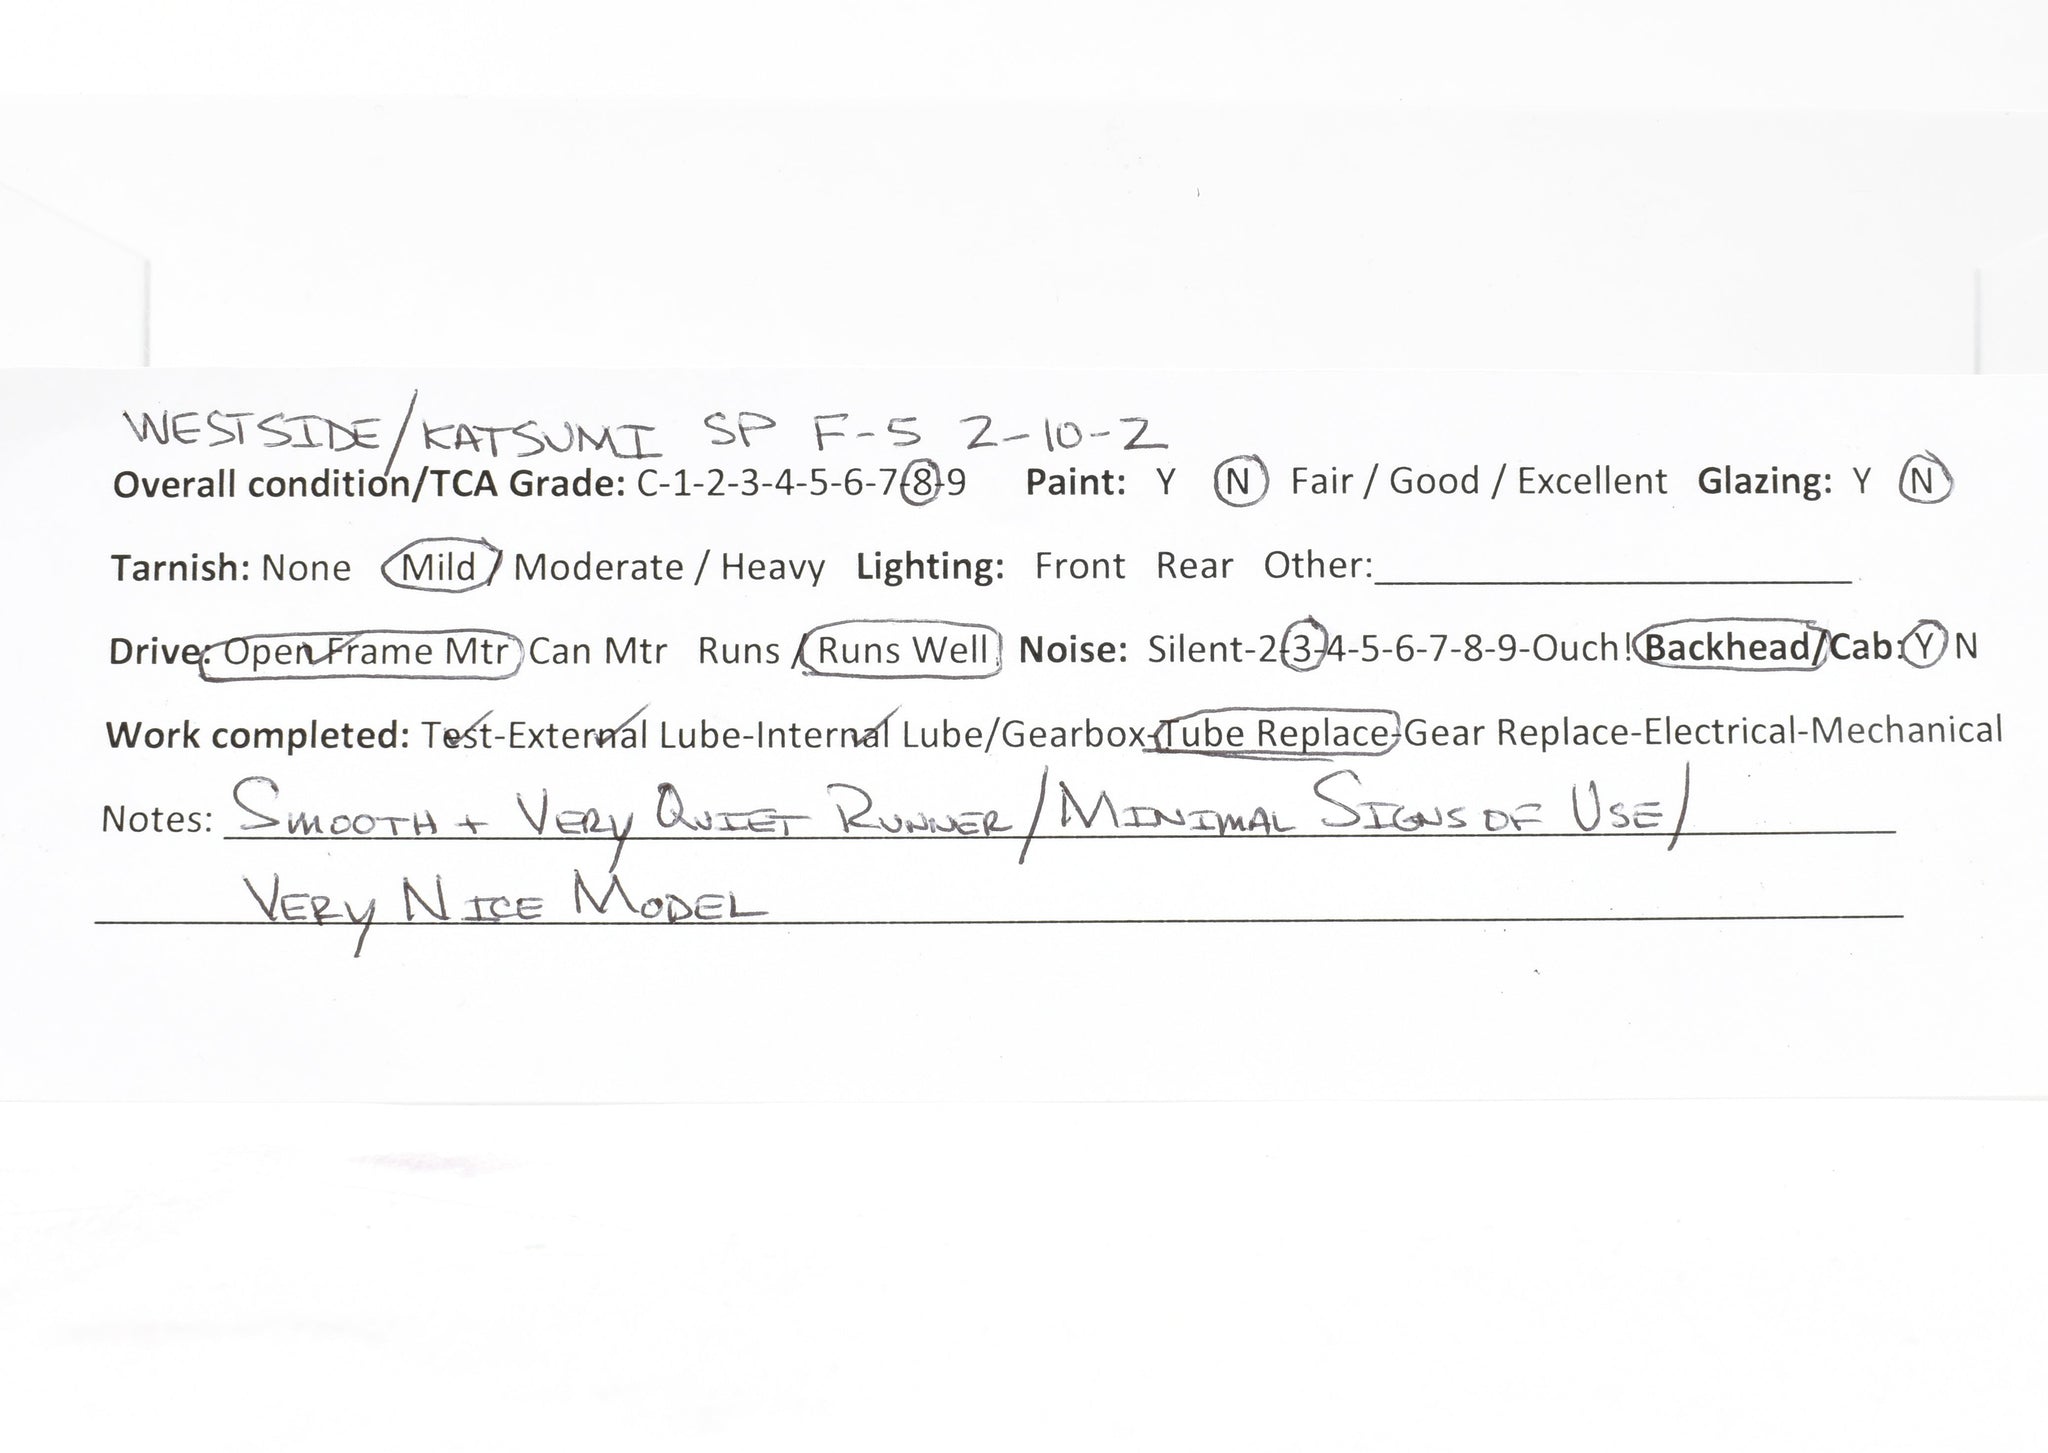 WESTSIDE/KATSUMI SP F-5 2-10-2
Overall condition/TCA Grade: C-1-2-3-4-5-6-7-8-9 Paint: Y N Fair / Good / Excellent Glazing: Y N
Tarnish: None Mild / Moderate / Heavy Lighting: Front Rear Other:
Drive: Open Frame Mtr Can Mtr Runs / Runs Well Noise: Silent-2-3-4-5-6-7-8-9-Ouch! Backhead/Cab: Y N
Work completed: Test-External Lube-Internal Lube/Gearbox-Tube Replace-Gear Replace-Electrical-Mechanical
Notes: SMOOTH + VERY QUIET RUNNER/MINIMAL SIGNS OF USE/
VERY NICE MODEL